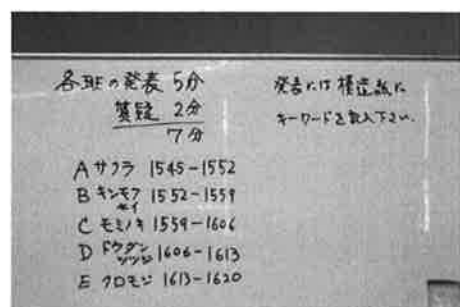 各班の発表 5分
質疑 2分
7分
A サクラ 1545-1552
B キンモクセイ 1552-1559
C モミノキ 1559-1606
D ドウダンツツジ 1606-1613
E クロモジ 1613-1620
発表には模造紙に
キーワードを記入下さい.